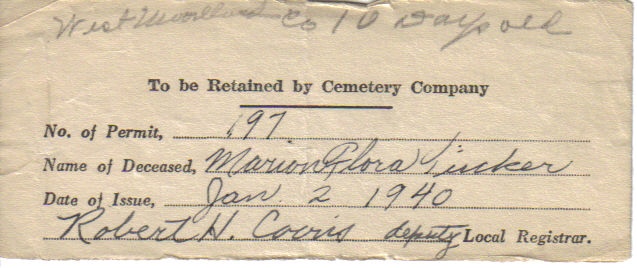 West Moorland Co 10 Days old
To be Retained by Cemetery Company
No. of Permit, 197
Name of Deceased, Marion Flora Tucker
Date of Issue, Jan. 2 1940
Robert H. deputy Local Registrar.